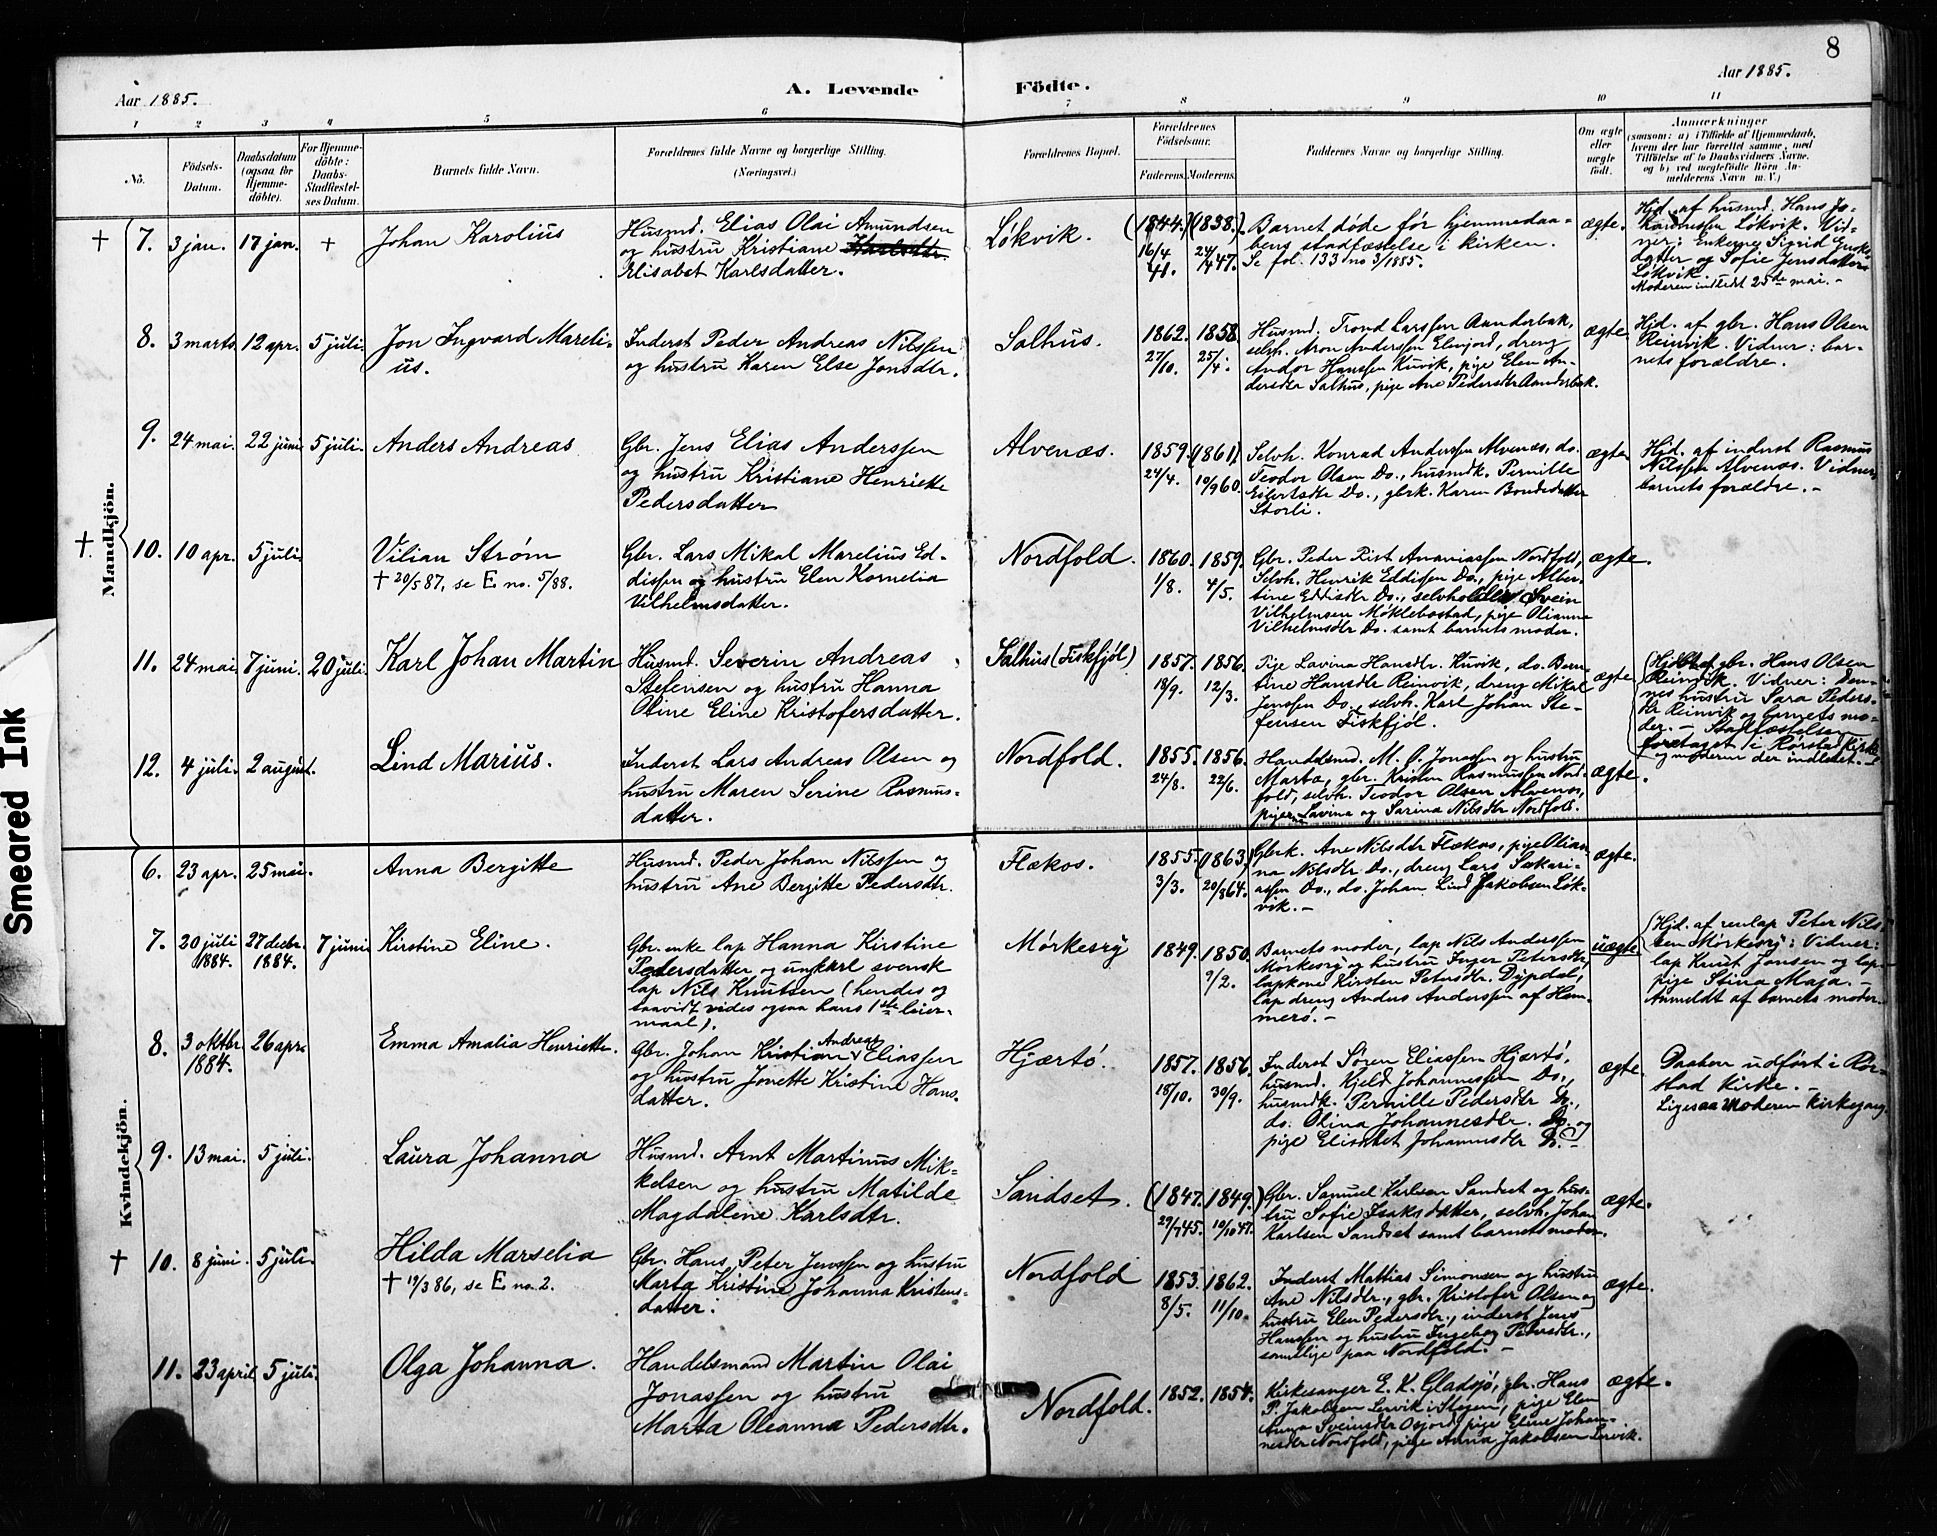 8
Aar 1885.
A. Levende Födte.
Aar 1885.
1 2 3 4 5 6 7 8 9 10 11
No.
Födsels-Datum.
Daabsdatum (ogsaa for Hjemme-döbte).
For Hjemme-döbte: Daabs-Stadfæstel-ses Datum.
Barnets fulde Navn.
Forældrenes fulde Navne og borgerlige Stilling.
(Næringsvei.)
Forældrenes Bopæl.
Forældrenes Födselsaar.
Faderens. Moderens.
Faddernes Navne og borgerlige Stilling.
Om ægte eller uægte födt.
Anmærkninger
(saasom: a) i Tilfælde af Hjemmedaab,
hvem der har forrettet samme, med
Tilföielse af to Daabsvidners Navne,
og b) ved uægtefödte Börn An-
melderens Navn m. V.)
Mandkjön.
† 7. 3 jan. 17 jan. † Johan Karolius
Husmd. Elias Olai Amundsen
og hustru Kristiane Karlsdtr.
Elisabet Karlsdatter.
Løkvik.
(1844.) (1838.)
16/4 41. 24/4 47.
Barnet døde før hjemmedaa-
bens stadfæstelse i kirken.
Se fol. 133 no 3/1885.
ægte.
Hjd. af husmd. Hans Jo-
hannessen Løkvik. Vid-
ner: Enkerne Sigrid Enoks-
datter og Sofie Jensdatter
Løkvik.
Moderen indledt 25de mai. -
8. 3 marts. 12 apr. 5 juli. Jon Ingvard Mareli-
us.
Inderst Peder Andreas Nilssen
og hustru Karen Else Jonsdtr.
Salhus.
1862. 1858.
27/10. 25/4.
Husmd. Trond Larssen Aanderbak,
selvh. Aron Anderssen Elvejord, dreng
Andor Hanssen Kuvik, pige Elen An-
dersdtr Salhus, pige Ane Pedersdtr Aanderbak.
ægte.
Hjd. af gbr. Hans Olsen
Reinvik. Vidner: bar-
nets forældre.
9. 24 mai. 22 juni 5 juli. Anders Andreas
Gbr. Jens Elias Anderssen
og hustru Kristiane Henriette
Pedersdatter
Alvenæs.
1859. (1861)
24/4. 10/9 60.
Selvh. Konrad Anderssen Alvenæs, do.
Teodor Olsen Do., husmdk. Pernille
Eilertsdtr Do., gbrk. Karen Bondedatter
Storli.
ægte
Hjd. af inderst Rasmus
Nilssen Alvenæs. Vidner,
barnets forældre. -
†. 10. 10 apr. 5 juli. Vilian Strøm
† 20/5 87, se E no. 5/88.
Gbr. Lars Mikal Marelius Ed-
dissen og hustru Elen Kornelia
Vilhelmsdatter.
Nordfold.
1860. 1859.
1/8. 4/5.
Gbr. Peder Rist Ananiassen Nordfold,
Selvh. Henrik Eddissen Do., pige Alber-
tine Eddisdtr Do., selvholder Svein
Vilhelmsen Møklebostad, pige Olianna
Vilhelmsdtr Do. samt barnets moder.
ægte.
11. 24 mai 7 juni. 20 juli. Karl Johan Martin
Husmd. Severin Andreas
Stefensen og hustru Hanna
Oline Eline Kristofersdatter.
Salhus (Fiskfjøl)
1857. 1856.
18/9. 12/3.
Pige Lavina Hansdtr. Kuvik, do. Bern-
tine Hansdtr Reinvik, dreng Mikal
Jenssen Do., selvh. Karl Johan Ste-
fensen Fiskfjøl.
ægte
(Hjd. af gbr. Hans Olsen
Reinvik. Vidner: Den-
nes hustru Sara Peders-
dtr Reinvik og barnets mo-
der. - Stadfæstelsen
foretaget i Rørstad kirke
og moderen der indledet. -
12. 4 juli. 2 august. Lind Marius.
Inderst Lars Andreas Olsen og
hustru Maren Serine Rasmus-
datter.
Nordfold.
1855. 1856.
24/8. 22/6.
Handelsmd. M. O. Jonassen og hustru
Marta, gbr. Kristen Rasmussen Nord-
fold, selvh. Teodor Olsen Alvenæs,
pigerne Lavina og Sarina Nilsdtr Nordfold.
ægte.
Kvindekjön.
6. 23 apr. 25 mai. Anna Bergitte
Husmd. Peder Johan Nilssen og
hustru Ane Bergitte Pedersdtr.
Flækos.
1855. (1863.)
3/3. 20/8 64.
Gbrk. Ane Nilsdtr Flækos, pige Olian-
na Nilsdtr Do., dreng Lars Sakari-
assen Do., do. Johan Lind Jakobsen Løk-
vik. -
ægte.
7. 20 juli 1884. 27 decbr. 1884. 7 juni Kirstine Eline.
Gbr. enke lap Hanna Kirstine
Pedersdatter og ungkarl svensk
lap Nils Knutsen (hendes og
saavidt vides ogsaa hans 1ste leier-
maal).
Mørkesvj
1849. 1850.
9/2.
Barnets moder, lap Nils Anderssen
Mørkesvj og hustru Inger Petersdtr,
lapkone Kirsten Petersdtr. Dypdal,
lap dreng Anders Anderssen af Ham-
merø. -
uægte
(Hjd. af renlap Peter Nils-
sen Mørkesvj: Vidner:
lap Knut Jonsen og lap-
pige Stina Maja. -
Anmeldt af barnets moder.
8. 3 oktbr. 1884. 26 apr. Emma Amalia Henriette.
Gbr. Johan Kristian Andreas Eliassen
og hustru Jonette Kristine Hans-
datter.
Hjærtø.
1857. 1856.
18/10. 30/9.
Inderst Søren Eliassen Hjærtø,
husmd. Kjeld Johannessen Do.,
husmdk. Pernille Pedersdtr Do.,
do. Olina Johannesdtr. Do. og
pige Elisabet Johannesdtr Do.
ægte.
Daaben udført i Rør-
stad kirke. -
Ligesaa Moderen kirkegang.
9. 13 mai. 5 juli. Laura Johanna
Husmd. Arnt Martinus Mik-
kelsen og hustru Matilde
Magdalene Karlsdtr.
Sandset.
(1847. 1849.)
29/7 45. 10/10 47.
Gbr. Samuel Karlsen Sandset og hus-
tru Sofie Isaksdatter, selvh. Johan
Karlsen Sandset samt barnets moder.
ægte.
† 10. 8 juni. 5 juli. Hilda Marselia
† 19/3 86, se E no. 2.
Gbr. Hans Peter Jenssen og hustru
Marta Kristine Johanna Kristens-
datter.
Nordfold
1853. 1862.
8/5. 11/10.
Inderst Mattias Simonsen og hustru
Ane Nilsdtr., gbr. Kristofer Olsen og
hustru Elen Pedersdtr., inderst Jens
Hanssen og hustru Ingeborg Petersdtr.,
samtlige paa Nordfold. -
ægte.
11. 23 april 5 juli. Olga Johanna.
Handelsmand Martin Olai
Jonassen og hustru
Marta Oleanna Pedersdtr.
Nordfold.
1852. 1854.
Kirkesanger E. K. Gladsjø, gbr. Hans
P. Jakobsen Lervik i Stegen, pige Elen
Anna Sveinsdtr Osjord, pige Eline Johan-
nesdtr Nordfold, pige Anna Jakobsen Lervik.
ægte.
Smeared Ink